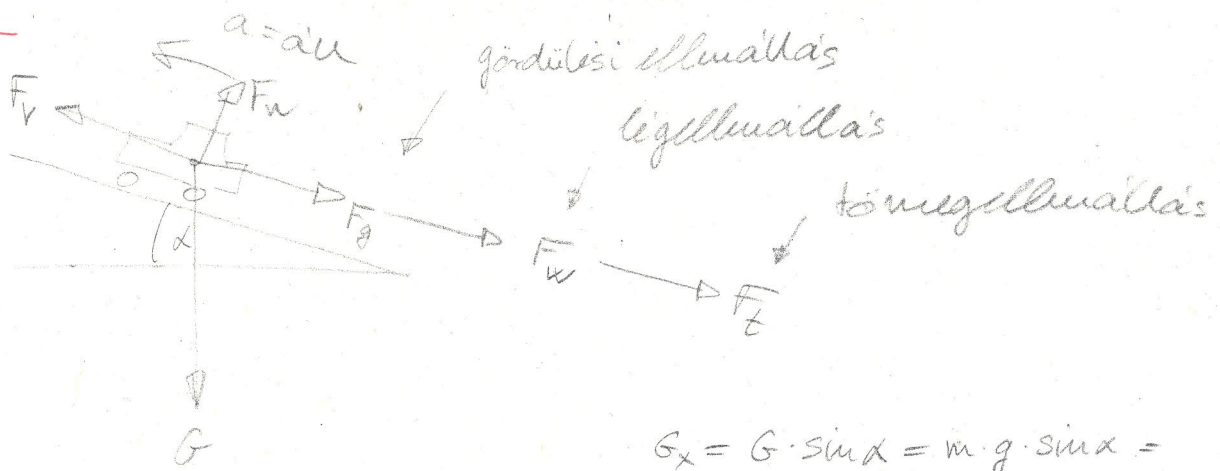 a = áll
gördülési ellenállás
F_v
F_n
légellenállás
tömegellenállás
F_g
F_w
α
F_t
G
G_x = G · sin α = m · g · sin α =